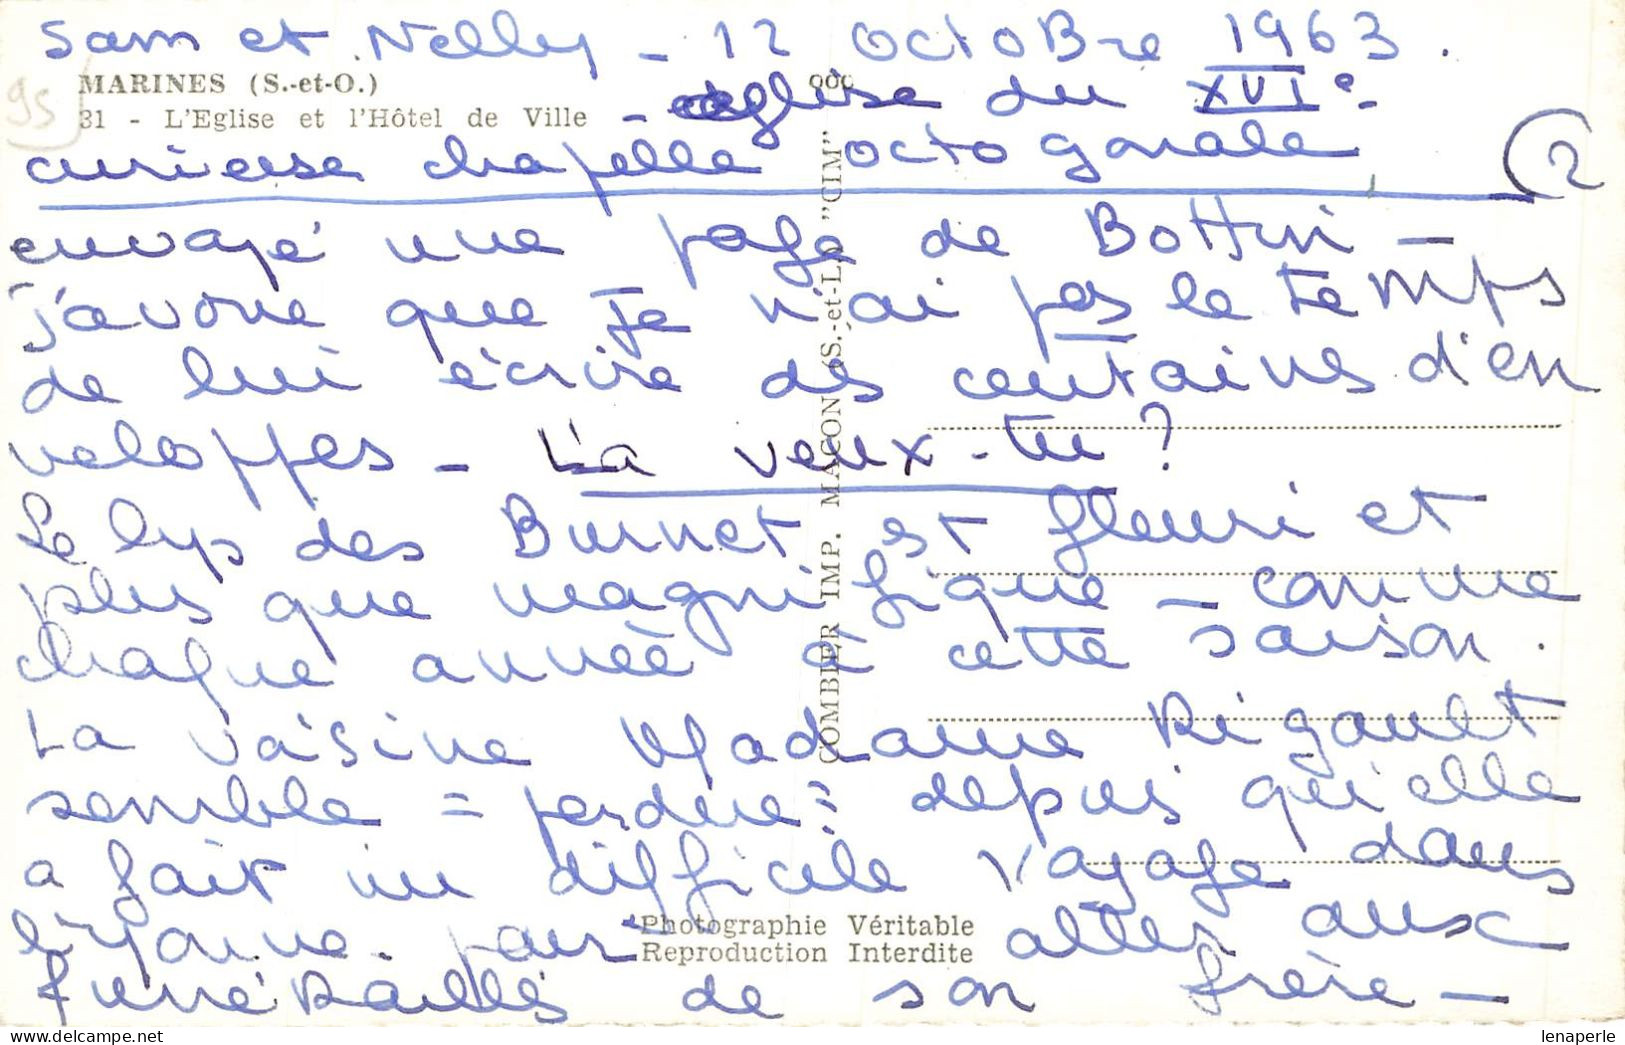 Sam et Nelly - 12 octoBre 1963.
95
MARINES (S.-et-O.)
31 - L'Eglise et l'Hôtel de Ville
- eglise du XVIe-
curieuse chapelle octogonale
2
envoyé une page de Bottin -
j'avoue que je n'ai pas le temps
de lui écrire des centaines d'en
veloppes - La veux-tu ?
Le lys des Burnet est fleuri et
plus que magnifique - comme
chaque année à cette saison.
La voisine Madame Rigault
semble = perdue = depuis qu'elle
a fait un difficile voyage dans
l'Yonne pour aller aux
funérailles de son frère -
COMBIER IMP. MACON (S.-et-L.) "CIM"
Photographie Véritable
Reproduction Interdite
lenaperle